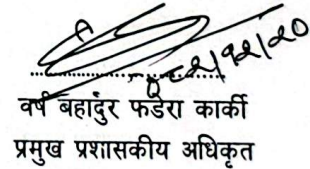 वर्ष बहादुर फडेरा कार्की
प्रमुख प्रशासकीय अधिकृत